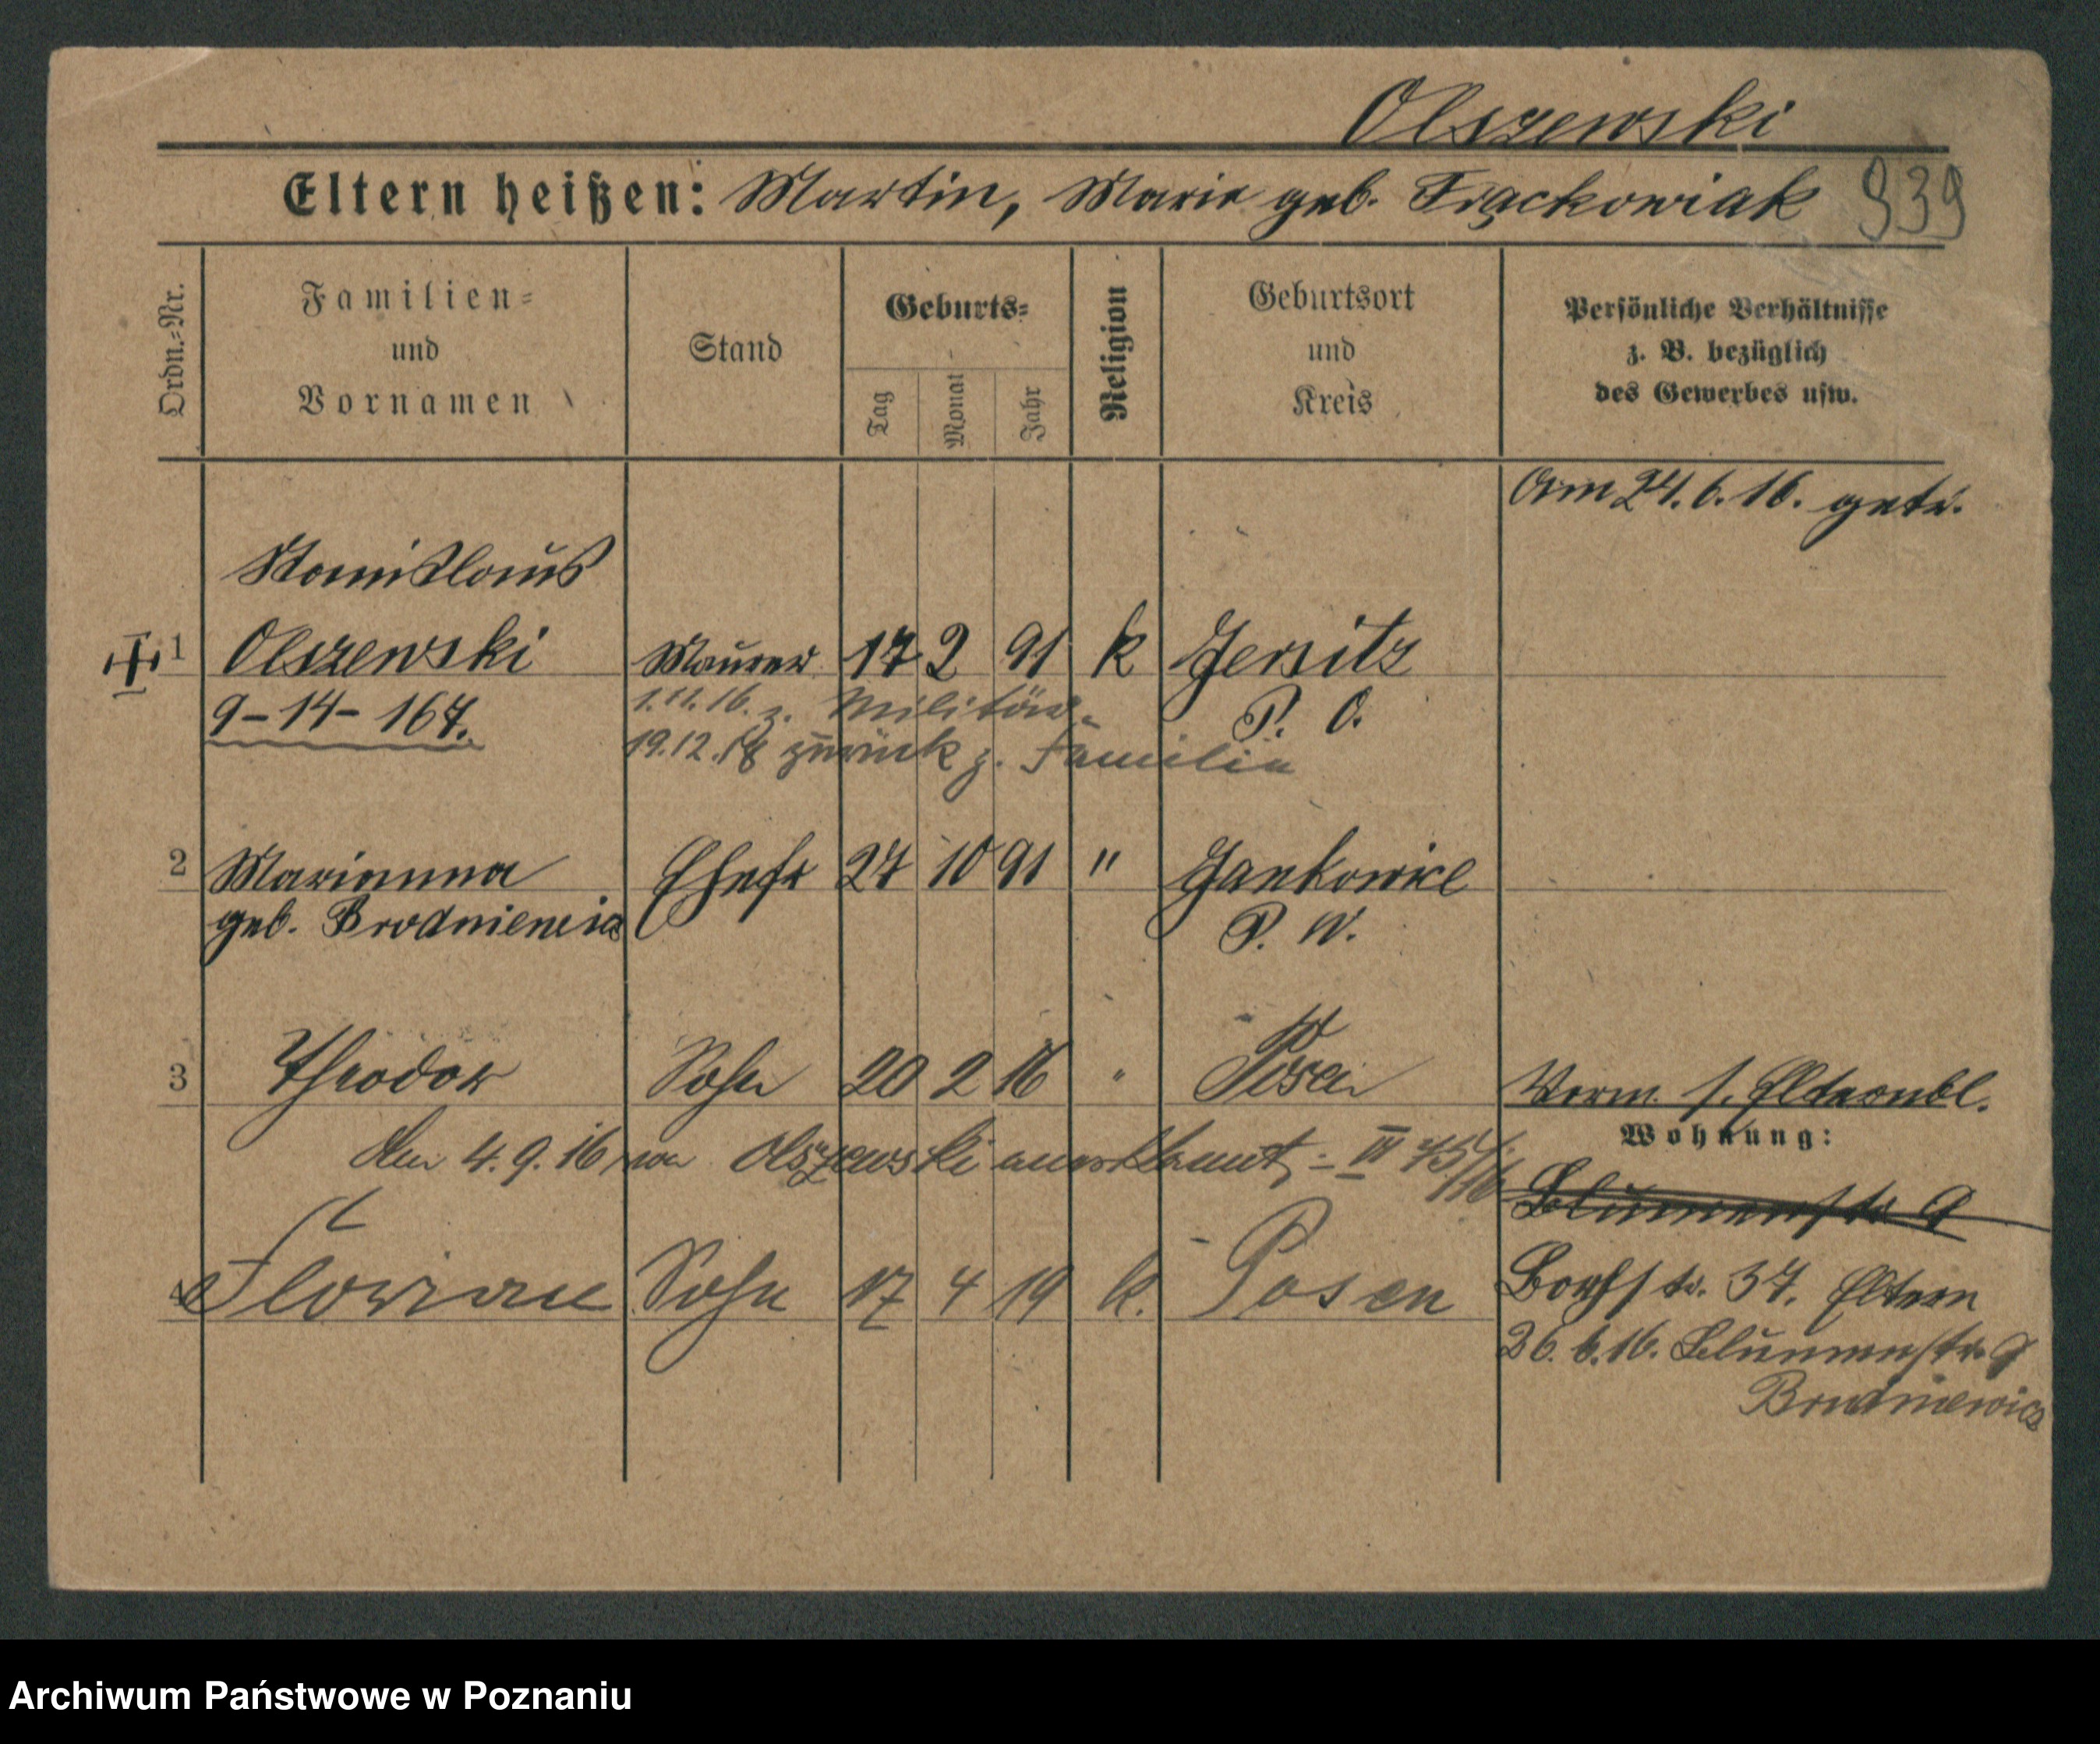 Olszewski
Eltern heißen: Martin, Marie geb. Frąckowiak 939
Ordn.-Nr.
Familien-
und
Vornamen
Stand
Geburts-
Tag
Monat
Jahr
Religion
Geburtsort
und
Kreis
Persönliche Verhältnisse
z. B. bezüglich
des Gewerbes usw.
Am 24. 6. 16. getr.
Stanislaus
1 Olszewski Maurer 17 2 91 k Jersitz
9-14-167. 1.11.16. z. Militär. P. O.
19.12.18 zurück z. Familie
2 Marianna Ehefr 27 10 91 " Jankowice
geb. Brodniewicz P. W.
3 Theodor Sohn 20 2 16 " Posen Verm. s. Elternbl.
Wohnung:
den 4.9.16 von Olszewski anerkannt - VI
Blumenstr 9
4 Florian Sohn 17 4 19 k. Posen 37. Eltern
26. 6. 16. Blumenstr. 9
Brodniewicz
Archiwum Państwowe w Poznaniu